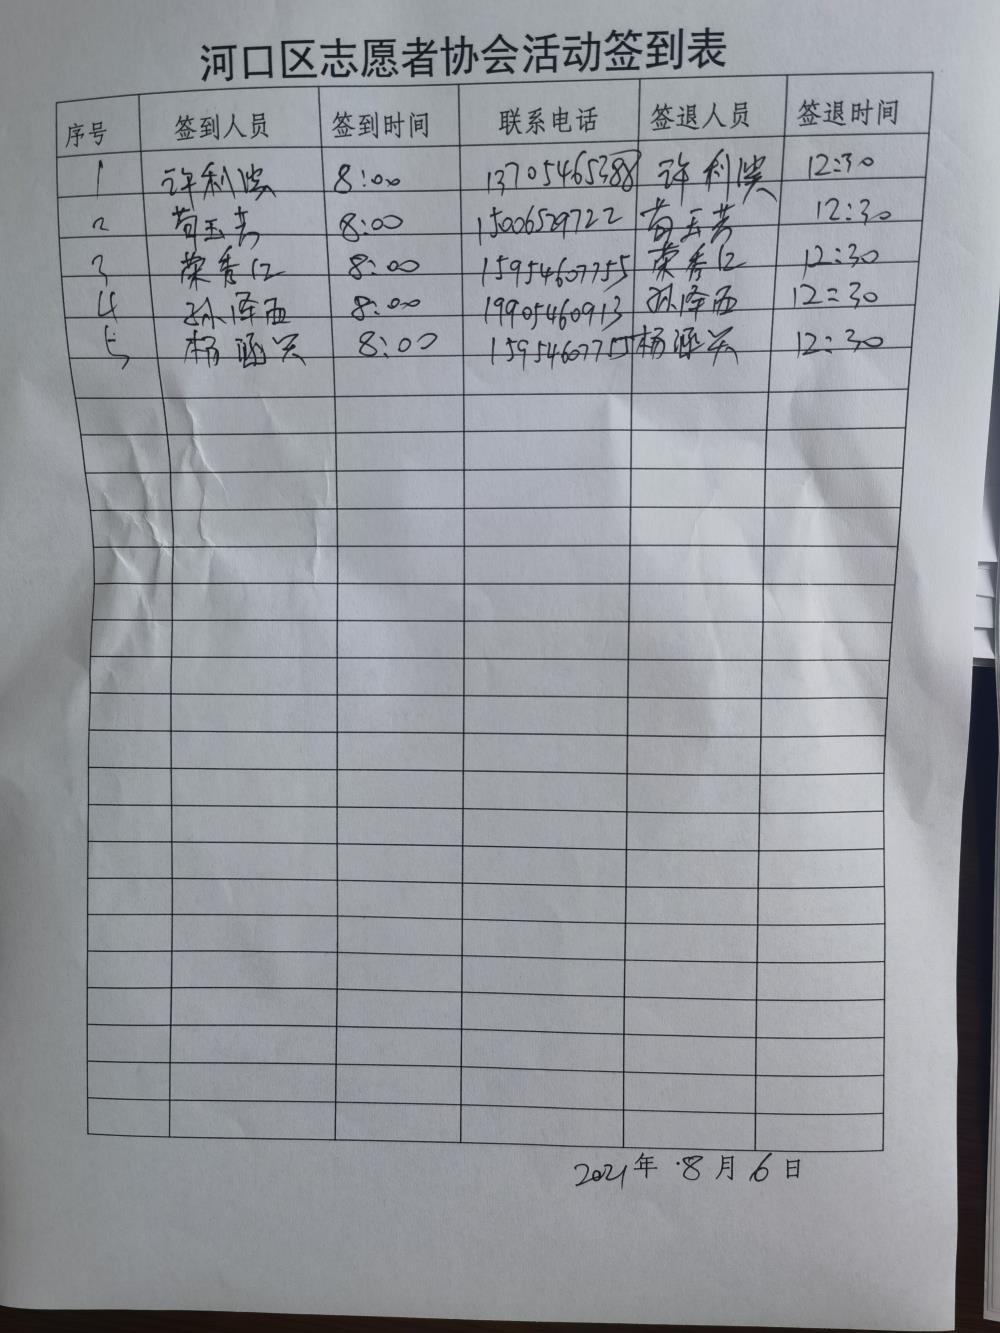 河口区志愿者协会活动签到表
序号 签到人员 签到时间 联系电话 签退人员 签退时间
1 许利滨 8:00 13705465388 许利滨 12:30
2 苟玉芳 8:00 15006529722 苟玉芳 12:30
3 荣秀江 8:00 15954607755 荣秀江 12:30
4 孙泽西 8:00 19905460913 孙泽西 12:30
5 杨涵 8:00 杨涵 12:30
2021年 8月6日